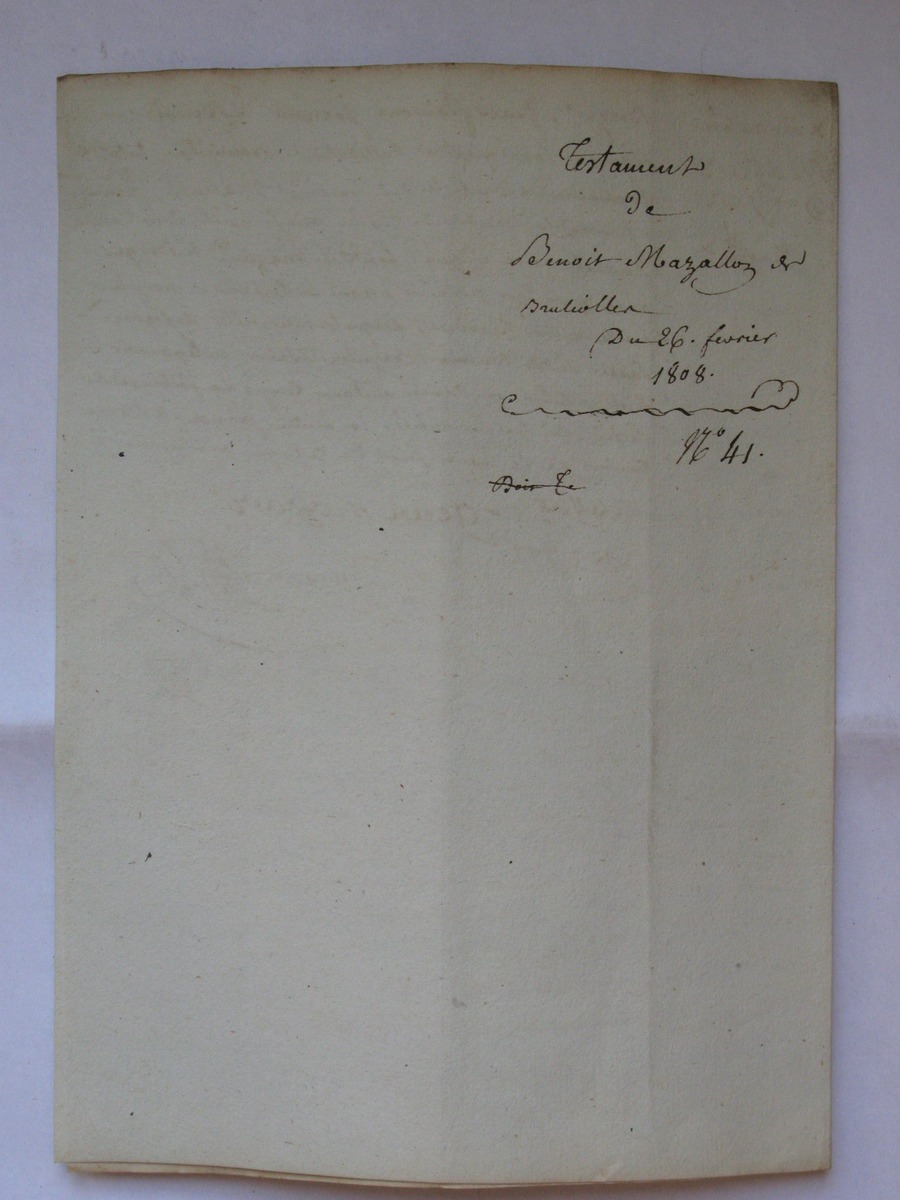 Testament
De
Benoit Mazallon de
Brulliolles
Du 26. fevrier
1808.
N° 41.